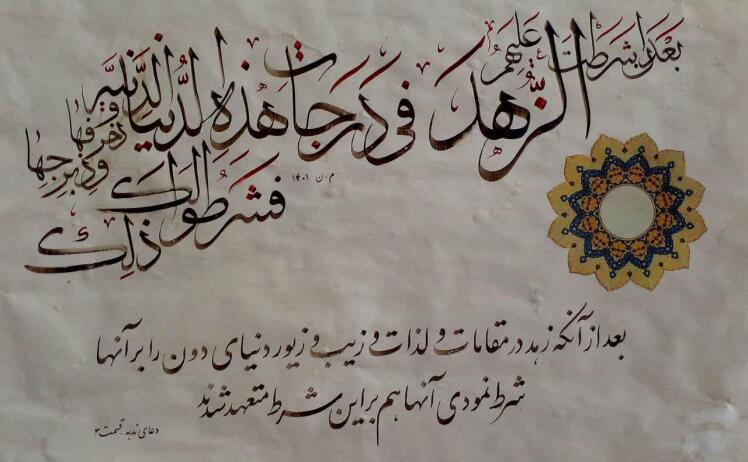 بَعْدَ اَنْ شَرَطْتَ عَلَیْهِمُ
الزُّهْدَ فی دَرَجاتِ هذِهِ الدُّنْیَا الدَّنِیَّةِ
وَ زُخْرُفِها وَ زِبْرِجِها
فَشَرَطُوا لَکَ ذلِکَ
م.ن ۱۴۰۱
بعد از آنکه زهد در مقامات و لذات و زیب و زیور دنیای دون را بر آنها
شرط نمودی آنها هم بر این شرط متعهد شدند
دعای ندبه - قسمت ۳